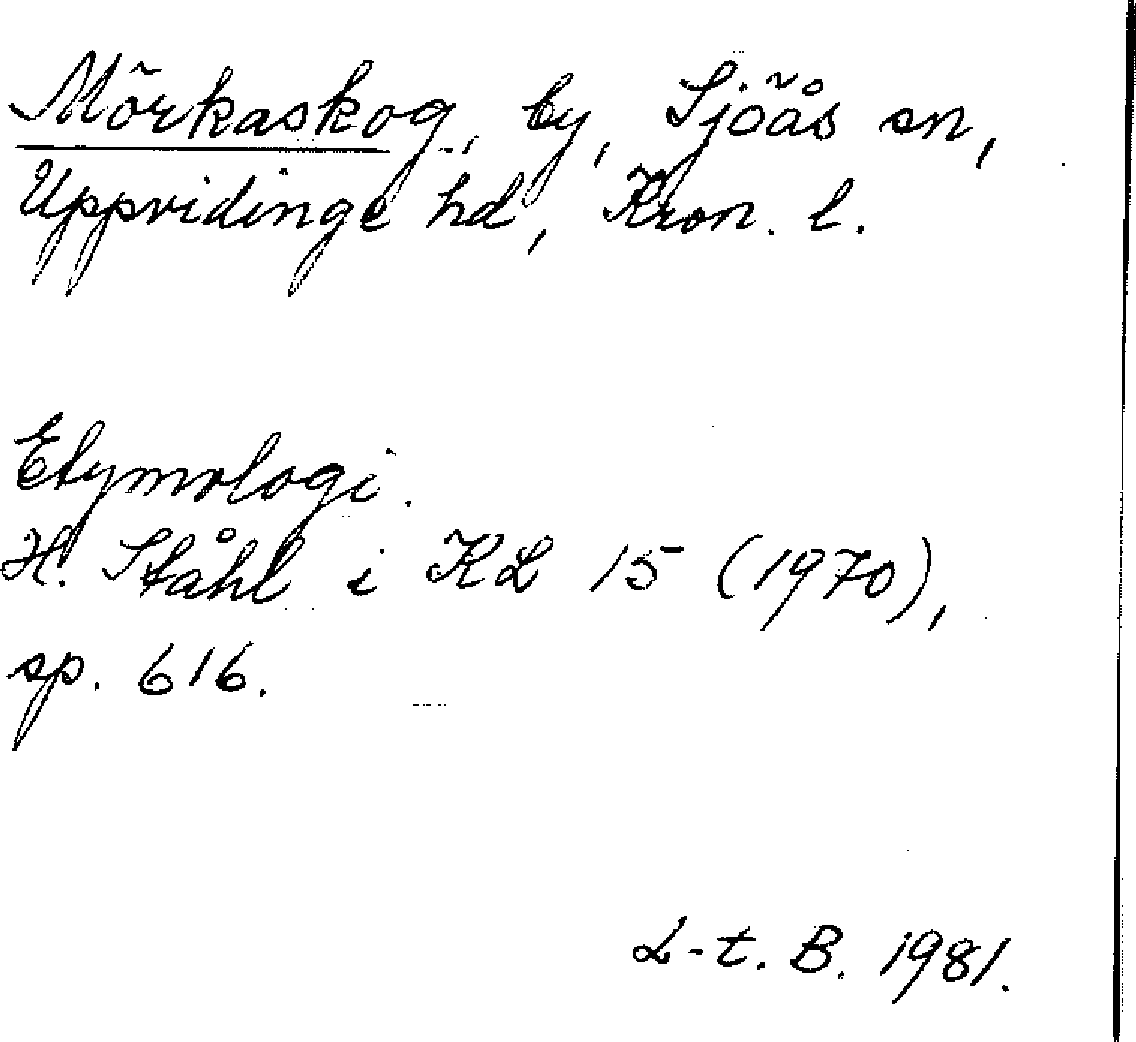 Mörkaskog, by, Sjöås sn,
Uppvidinge hd, Kron. l.
Etymologi.
H. Ståhl i KL 15 (1970),
sp. 616.
L-t. B. 1981.